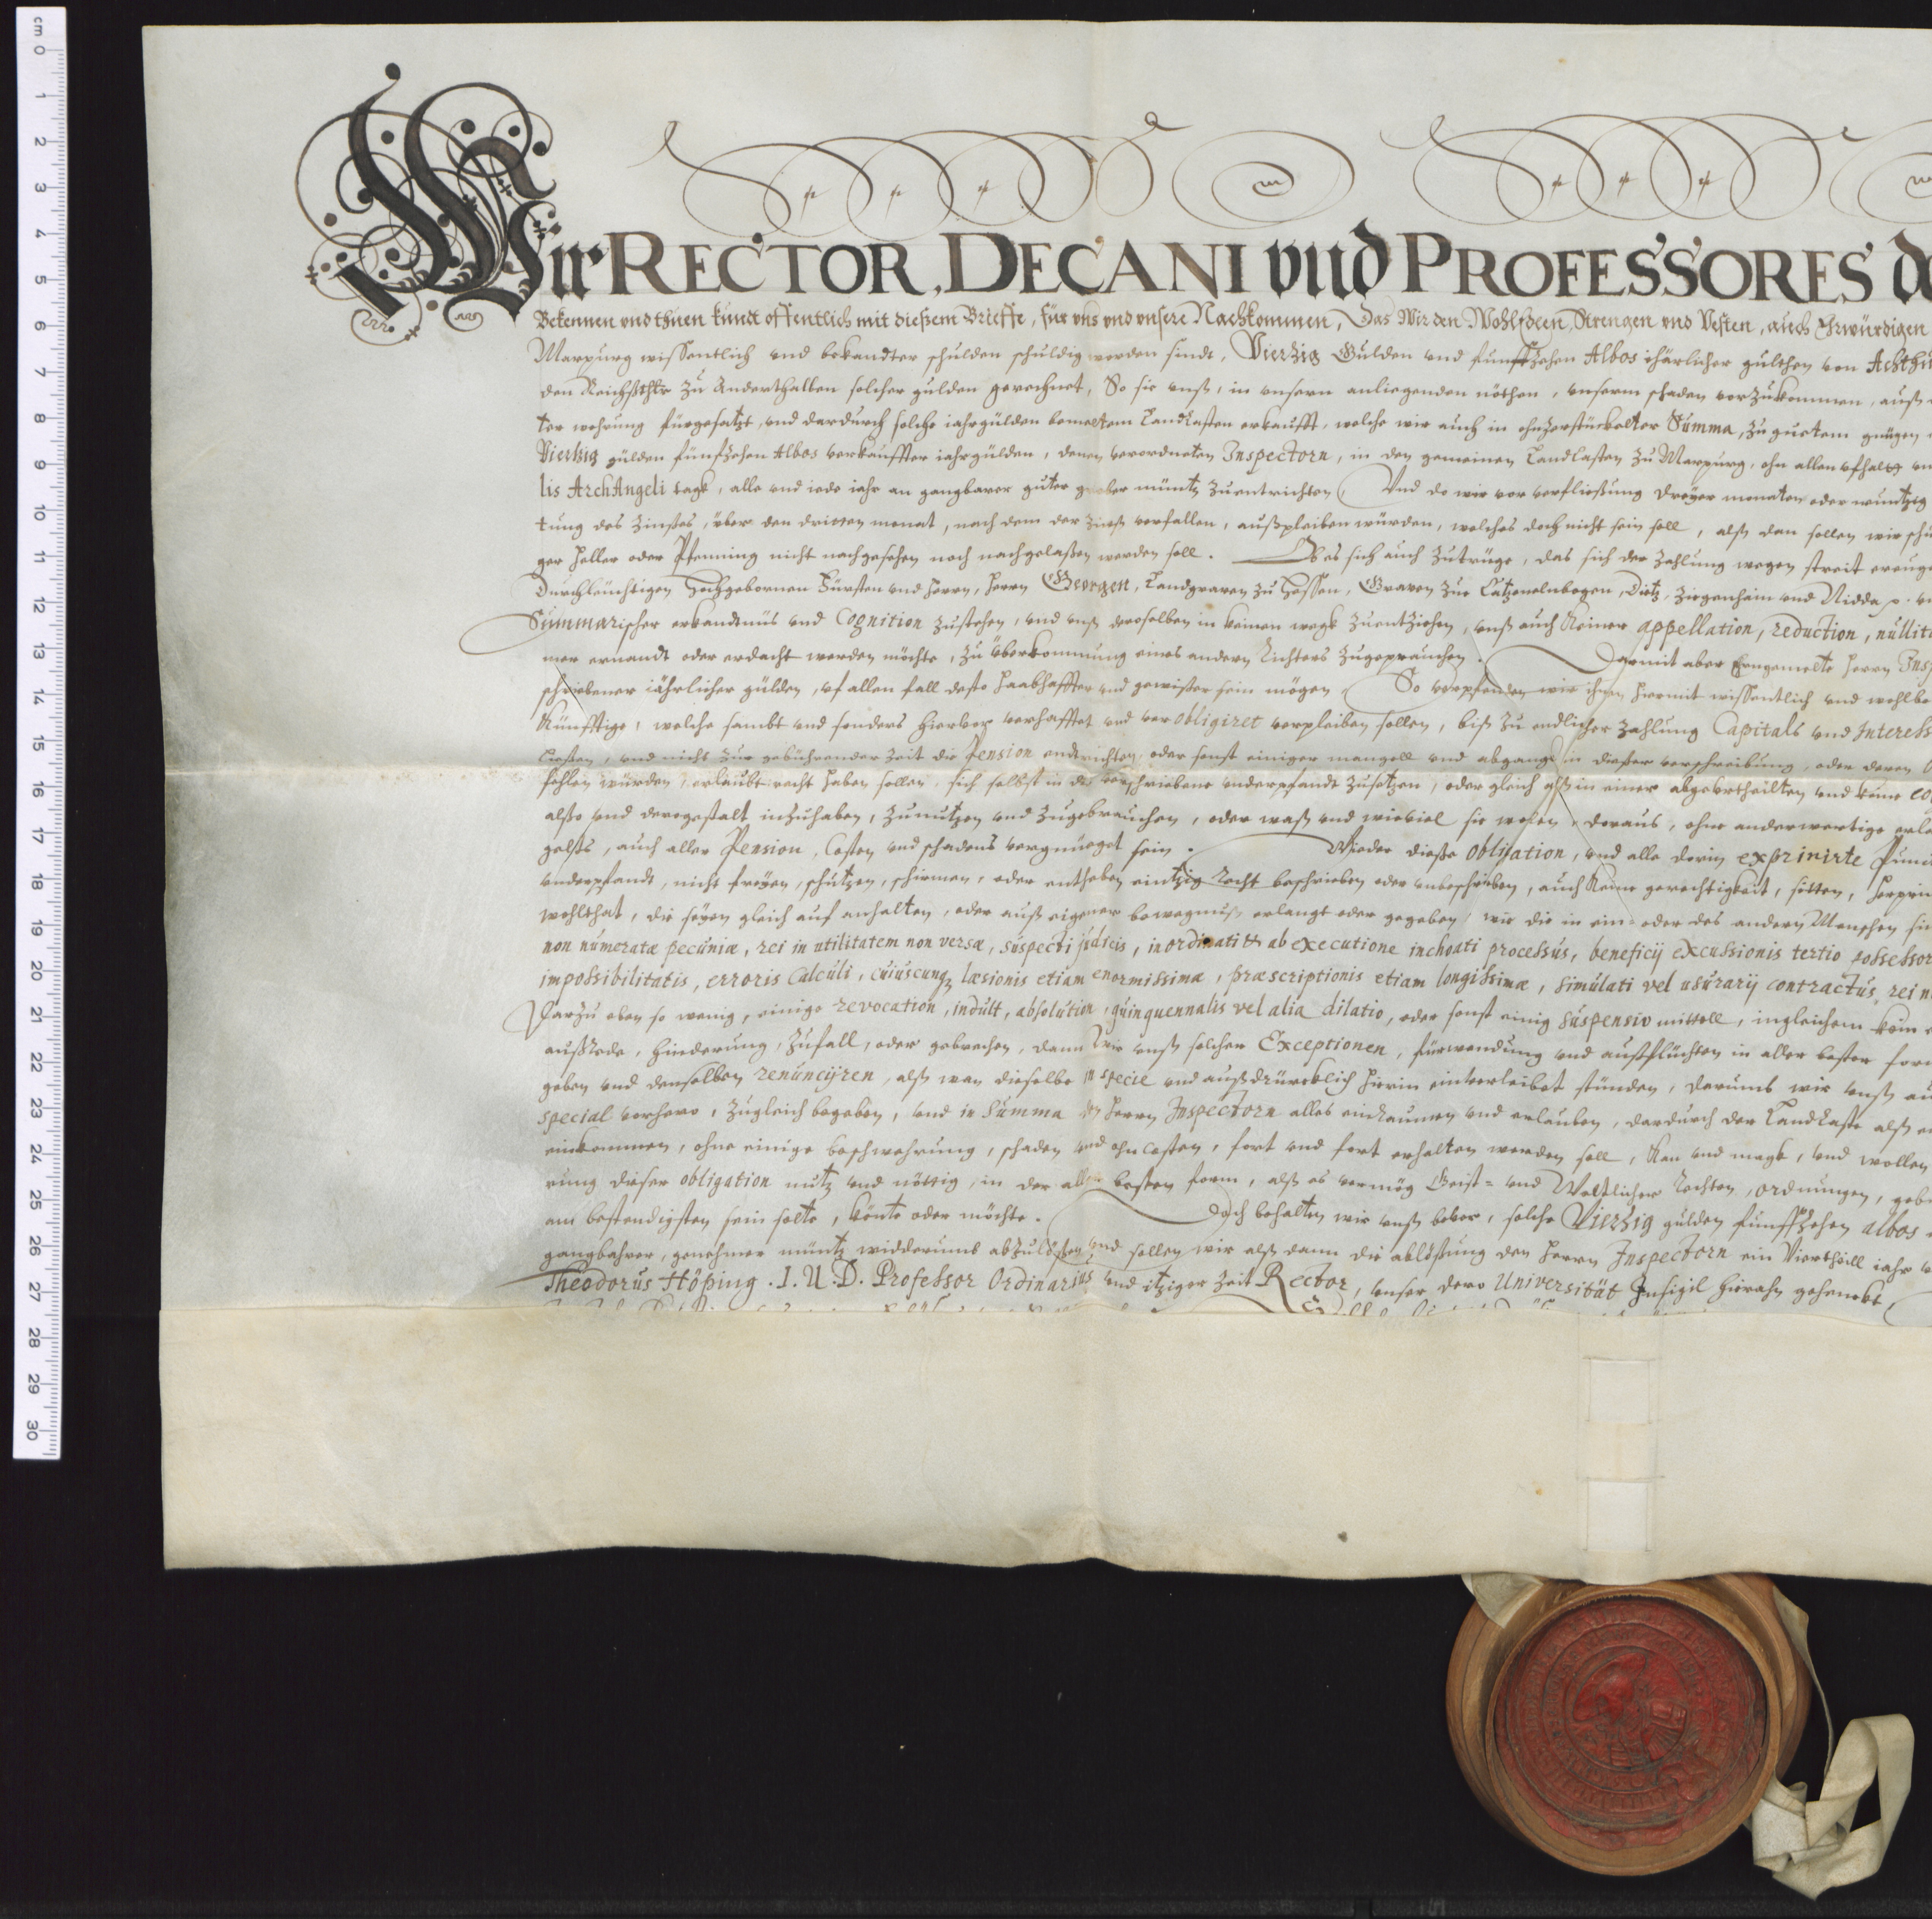 Wir RECTOR, DECANI vnd PROFESSORES
Bekennen vnd thuen kundt offentlich mit dießem Brieffe, für vns vnd vnsere Nachkommen, Das Wir den WohlEdlen, Strengen vnd Vesten, auch Ehrwürdigen
Marpurg wissentlich vnd bekandter schulden schuldig worden sindt, Vierzig Gulden vnd funffzehen Albos ihärlicher gulthen von
den Reichsthlr zu Anderthalben solcher gulden gerechnet, So sie vnß, in vnsern anliegenden nöthen, vnserm schaden vorzukommen, auß
ter wehrung fürgesatzt, vnd dardurch solche iahrgülden bemeltem Landkasten erkaufft, welche wir auch in ohnzerstückelter Summa, zu gutem gnügen
Vierzig gülden fünfzehen Albos verkauffter iahrgülden, denen verordneten Inspectorn, in den gemeinen Landkasten zu Marpurg, ohn allen vfhaltg
lis ArchAngeli tagk, alle vnd iede iahr an gangbarer guter grober müntz zuentrichten, Vnd do wir vor verfließung dreyer monaten oder
tung des Zinses, über den dritten monat, nach dem der Zinß verfallen, außpleiben würden, welches doch nicht sein soll, alß dan sollen wir
ger heller oder Pfenning nicht nachgesehen noch nachgelaßen werden soll. Ob es sich auch zutrüge, das sich der Zahlung wegen streit
Durchleuchtigen Hochgebornen Fürsten vnd Herrn, Herrn Georgen, Landgraven zu Hessen, Graven zue Catzenelnbogen, Dietz, Ziegenhain vnd Nidda
Summarischer erkandtnüs vnd Cognition zustehen, vnd vnß deroselben in keinen wegk zuentziehen, vnß auch keiner appellation, reduction,
mer ernandt oder erdacht werden möchte, zu überkommung eines andern Richters zugeprauchen. Darmit aber Herrn
schriebener iährlicher gülden, vf allen fall desto haabhaffter vnd gewißer sein mögen, So verpfenden wir ihnen hiermit wissentlich vnd
Künfftige, welche sambt vnd sonders hiervor verhafftet vnd verobligiret verpleiben sollen, biß zu endlicher Zahlung Capitals vnd
ließen, vnd nicht zur gebührender Zeit die Pension endtrichten, oder sonst einiger mangell vnd abgangk in dießer verschreibung, oder deren
fehlen würden, erlaubt recht haben sollen, sich selbst in das verschriebene vnderpfandt zusetzen, oder gleich alß in einer abgeurtheilten vnd
alßo vnd deregestalt inzuhaben, zunutzen vnd zugebrauchen, oder waß vnd wieviel sie wolen, doraus, ohne anderwertige
gelts, auch aller Pension, Costen vnd schadens vergnüeget sein. Wieder dieße obligation, vnd alle dorin exprimirte
vnderpfandt, nicht freyen, schützen, schirmen, oder entheben eintzig Recht beschrieben oder vnbeschrieben, auch keine gerechtigkeit, sitten,
wohlthat, die seyen gleich auf anhalten, oder auß eigener bewegnuß erlangt oder gegeben, wie die in ein- oder des andern Menschen
non numeratæ pecuniæ, rei in utilitatem non versæ, suspecti judicis, inordinati & ab executione inchoati processus, beneficij excussionis tertio
impossibilitatis, erroris Calculi, cuiuscunq, læsionis etiam enormissimæ, præscriptionis etiam longissimæ, simulati vel usurarij contractus,
Darzu eben so wenig, einige revocation, indult, absolution, quinquennalis vel alia dilatio, oder sonst einig suspensiv mittell, ingleichem kein
außrede, hinderung, zufall, oder gebrechen, dann Wir vnß solcher Exceptionen, fürwendung vnd außflüchten in aller bester
geben vnd denselben renuncijren, alß wan dieselbe in specie vnd außdrücklich hierin einverleibet stünden, darumb wir vnß
special verhero, zugleich begeben, vnd in Summa den Herrn Inspectorn alles einraumen vnd erlauben, dardurch der Landkaste alß
einkommen, ohne einige beschwehrung, schaden vnd ohn costen, fort vnd fort erhalten werden soll, kan vnd magk, vnd wollen
rung dieser obligation nutz vnd nöttig, in der aller besten form, alß es vermög Geist- vnd Weltlicher Rechten, ordnungen,
am bestendigsten sein solte, könte oder möchte. Doch behalten wir vnß bevor, solche Vierzig gülden funffzehen albos
gangbahrer, genehmer müntz widderumb abzulößen vnd sollen wir alß dann die ablößung den Herrn Inspectorn ein Viertheill iahr
Theodorus Höping. I. U. D. Professor Ordinarius vnd itziger Zeit Rector, vnser dero Universität Insigil hieran gehenckt,
cm 0 1 2 3 4 5 6 7 8 9 10 11 12 13 14 15 16 17 18 19 20 21 22 23 24 25 26 27 28 29 30